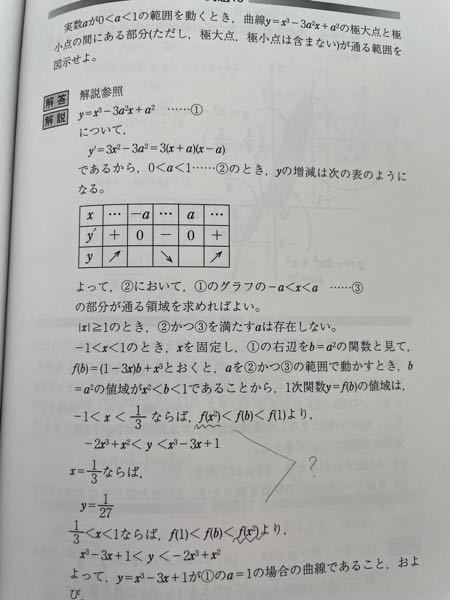 実数aが0<a<1の範囲を動くとき，曲線y=x³−3a²x+a²の極大点と極
小点の間にある部分(ただし，極大点，極小点は含まない)が通る範囲を
図示せよ。
解答 解説参照
解説 y=x³−3a²x+a² ……①
について，
y′=3x²−3a²=3(x+a)(x−a)
であるから，0<a<1……②のとき，yの増減は次の表のように
なる。
x … −a … a …
y′ + 0 − 0 +
y ↗ ↘ ↗
よって，②において，①のグラフの−a<x<a ……③
の部分が通る領域を求めればよい。
|x|≧1のとき，②かつ③を満たすaは存在しない。
−1<x<1のとき，xを固定し，①の右辺をb=a²の関数と見て，
f(b)=(1−3x)b+x³とおくと，aを②かつ③の範囲で動かすとき，b
=a²の値域がx²<b<1であることから，1次関数y=f(b)の値域は，
−1<x<1/3 ならば，f(x²)<f(b)<f(1)より，
−2x³+x²<y<x³−3x+1
?
x=1/3ならば，
y=1/27
1/3<x<1ならば，f(1)<f(b)<f(x²)より，
x³−3x+1<y<−2x³+x²
よって，y=x³−3x+1が①のa=1の場合の曲線であること，およ
び，